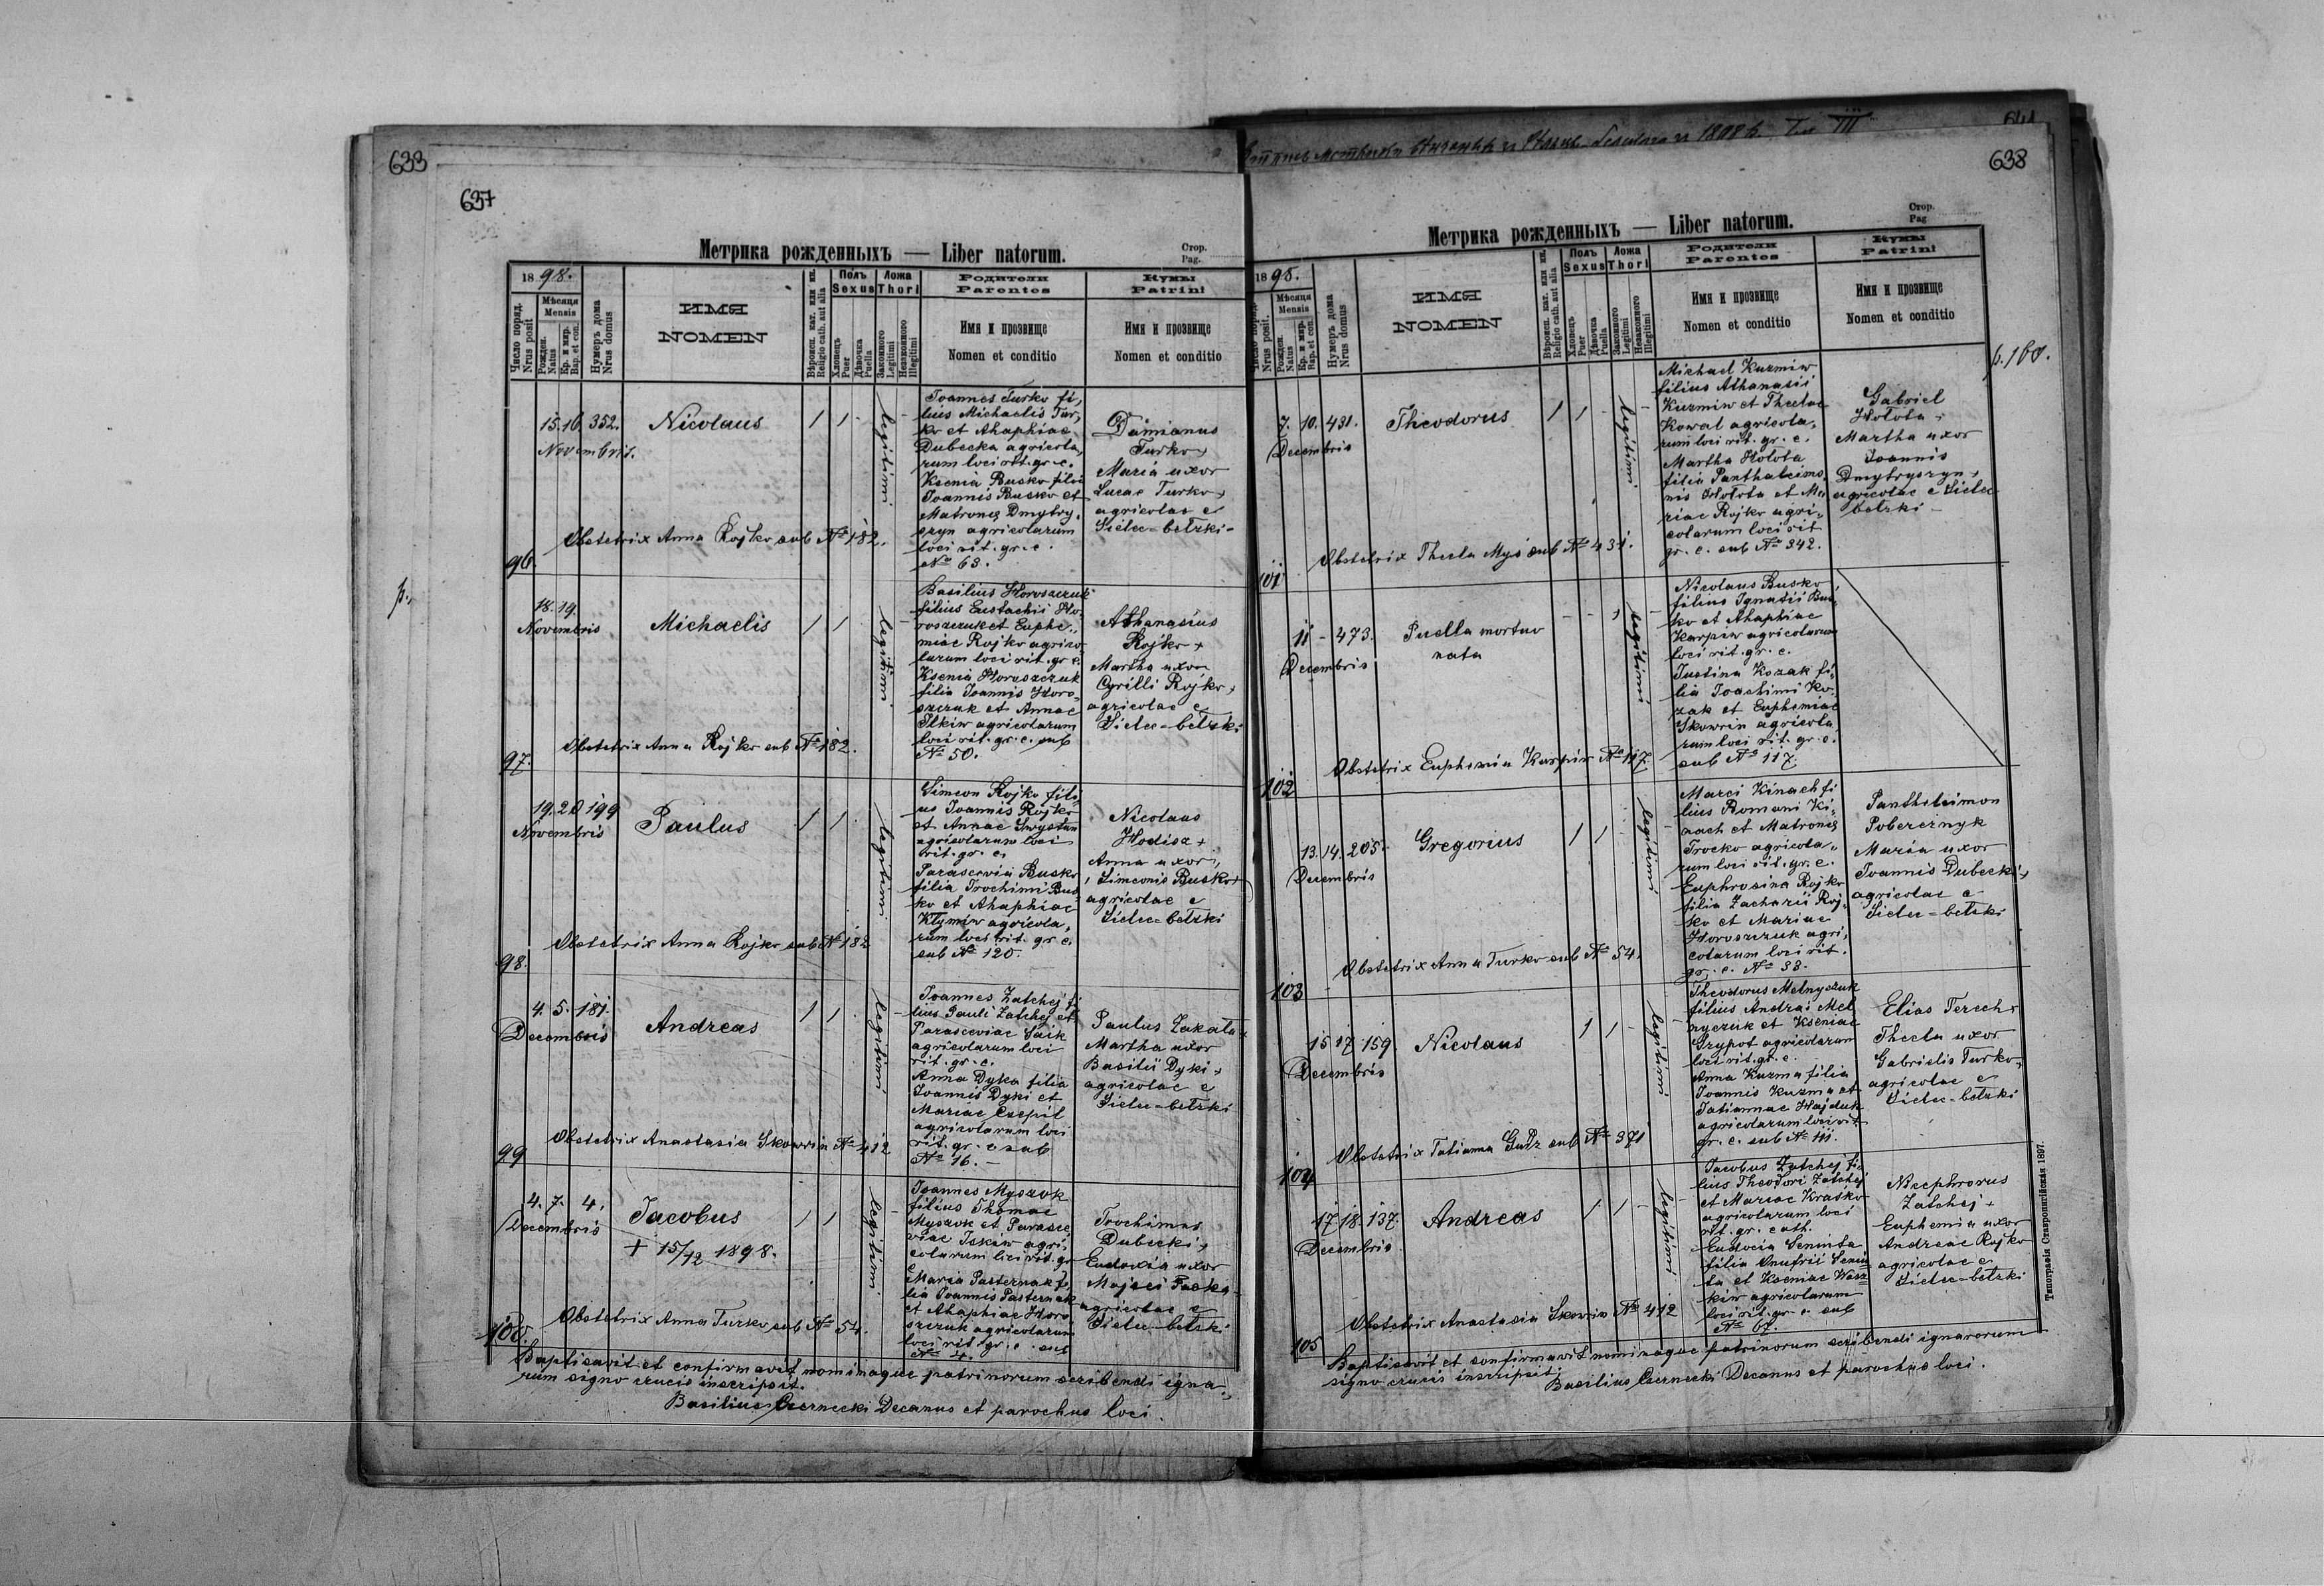 633
637
Метрика рожденныхъ — Liber natorum.
Стор.
Pag.
1898.
Число поряд.
Nrus posit
Мѣсяця
Mensis
Рожден.
Natus
Кр. и мѵр.
Bap. et con.
Нумеръ дома
Nrus domus
ИМЯ
NOMEN
Вѣроисп. кат. или ин.
Religio cath. aut alia
Полъ
Sexus
Хлопецъ
Puer
Дѣвочка
Puella
Ложа
Thori
Законного
Legitimi
Незаконного
Illegitimi
Родители
Parentes
Имя и прозвище
Nomen et conditio
Кумы
Patrini
Имя и прозвище
Nomen et conditio
96.
15. 16. 352.
Novembris.
Nicolaus
1 1 -
legitimi
Joannes Turko fi„
lius Michaelis Tur„
ko et Ahaphiae
Dubecka agricola„
rum loci rit. gr. c.
Ksenia Busko filia
Joannis Busko et
Matrones Dmytry„
szyn agricolarum
loci rit. gr. c.
No 63.
Damianus
Turko +
Maria uxor
Lucae Turko +
agricolae e
Sielec-bełzki-
Obstetrix Anna Rojko sub No 182.
p.
97.
18. 19.
Novembris
Michaelis
1 1 -
legitimi
Basilius Horoszczuk
filius Eustachii Ho„
roszczuk et Euphe„
miae Rojko agrico„
larum loci rit. gr. c.
Ksenia Horoszczuk
filia Joannis Horo„
szczuk et Annae
Ilkiw agricolarum
loci rit. gr. c. sub
No 50.
Athanasius
Rojko +
Martha uxor
Cyrilli Rojko +
agricolae e
Sielec-bełzki
Obstetrix Anna Rojko sub No 182.
98.
19. 20 199
Novembris
Paulus
1 1
legitimi
Simeon Rojko fili„
us Joannis Rojko
et Annae Swystun
agricolarum loci
rit. gr. c.
Parascevia Busko
filia Trochimi Bus„
ko et Ahaphiae
Klymiw agricola„
rum loci rit. gr. c.
sub No 120.
Nicolaus
Hodisz +
Anna uxor
Simeonis Busko +
agricolae e
Sielec-bełzki
Obstetrix Anna Rojko sub No 182
99
4. 5. 181.
Decembris
Andreas
1 1
legitimi
Joannes Zatchej fi
lius Pauli Zatchej et
Parasceviae Saik
agricolarum loci
rit. gr. c.
Anna Dyka filia
Joannis Dyki et
Mariae Czepil
agricolarum loci
rit. gr. c. sub
No 16. -
Paulus Zakala +
Martha uxor
Basilii Dyki +
agricolae e
Sielec-bełzki
Obstetrix Anastasia Skowrin No 412
100.
4. 7. 4.
Decembris
Jacobus
+ 15/12 1898.
1 1
legitimi
Joannes Myszok
filius Thomae
Myszok et Parasce
viae Iskiw agri„
colarum loci rit. gr
c.
Maria Pasternak fi„
lia Joannis Pasternak
et Ahaphiae Horo
szczuk agricolarum
loci rit. gr. c. sub
No 4.
Trochimus
Dubecki +
Eudoxia uxor
agricolae e
Sielec-bełzki
Obstetrix Anna Turko sub No 54.
Baptisavit et confirmavit nominaque patrinorum scribendi igna„
rum signo crucis inscripsit.
Basilius Czernecki Decanus et parochus loci.
1898 Том III
638
Метрика рожденныхъ — Liber natorum.
Стор.
Pag
1898.
Число поряд.
Nrus posit.
Мѣсяця
Mensis
Рожден.
Natus
Кр. и мѵр.
Bap. et con.
Нумеръ дома
Nrus domus
ИМЯ
NOMEN
Вѣроисп. кат. или ин.
Religio cath. aut alia
Полъ
Sexus
Хлопецъ
Puer
Дѣвочка
Puella
Ложа
Thori
Законного
Legitimi
Незаконного
Illegitimi
Родители
Parentes
Имя и прозвище
Nomen et conditio
Кумы
Patrini
Имя и прозвище
Nomen et conditio
p. 160.
101
7. 10. 431.
Decembris
Theodorus
1 1 -
legitimi
Michael Kuzmiw
filius Athanasii
Kuzmiw et Theclae
Kowal agricola„
rum loci rit. gr. c.
Martha Hołota
filia Panthaleimo„
nis Hołota et Ma
riae Rojko agri„
colarum loci rit
gr. c. sub No 342.
Gabriel
Hołota +
Martha uxor
Joannis
Dmytryszyn +
agricolae e Sielec
bełzki -
Obstetrix Thecla Myś sub No 431.
102
11 - 473.
Decembris
Puella mortuo
nata
- - 1
legitimi
Nicolaus Busko
filius Ignatii Bus„
ko et Ahaphiae
Karpiw agricolarum
loci rit. gr. c.
Justina Kozak fi„
lia Joachimi Ko„
zak et Euphemiae
Skowrin agricola
rum loci rit. gr. c.
sub No 117.
Obstetrix Euphemia Karpiw No 117
103
13. 14. 205.
Decembris
Gregorius
1 1
legitimi
Marci Kinach fi
lius Romani Ki„
nach et Matrones
Trocko agricola„
rum loci rit. gr. c.
Euphrosina Rojko
filia Zacharii Roj„
ko et Mariae
Horoszczuk agri„
colarum loci rit.
gr. c. No 33.
Panthaleimon
Pobereznyk
Maria uxor
Joannis Dubecki +
agricolae e
Sielec-bełzki
Obstetrix Anna Turko sub No 54.
104
15 17 159.
Decembris
Nicolaus
1 1 -
legitimi
Theodorus Melnyczuk
filius Andrai Mel
nyczuk et Kseniae
Grypot agricolarum
loci rit. gr. c.
Anna Kuzma filia
Joannis Kuzma et
Tatiannae Hajduk
agricolarum loci rit
gr. c. sub No 111.
Elias Terech +
Thecla uxor
Gabrielis Turko +
agricolae e
Sielec-bełzki
Obstetrix Tatianna sub No 371
105
17. 18. 137.
Decembris
Andreas
1 1 -
legitimi
Jacobus Zatchej fi„
lius Theodori Zatchej
et Mariae Kraśko
agricolarum loci
rit. gr. cath.
Eudocia Seniuta
filia Onufrii Seniu
ta et Kseniae Wasz
kiw agricolarum
loci rit. gr. c. sub
No 67.
Nicephorus
Zatchej +
Euphemia uxor
Andreae Rojko
agricolae e
Sielec-bełzki
Obstetrix Anastasia Skowrin No 412
Baptisavit et confirmavit nominaque patrinorum scribendi ignarorum
signo crucis inscripsit.
Basilius Czernecki Decanus et parochus loci.
Типографія Ставропигійская 1897.